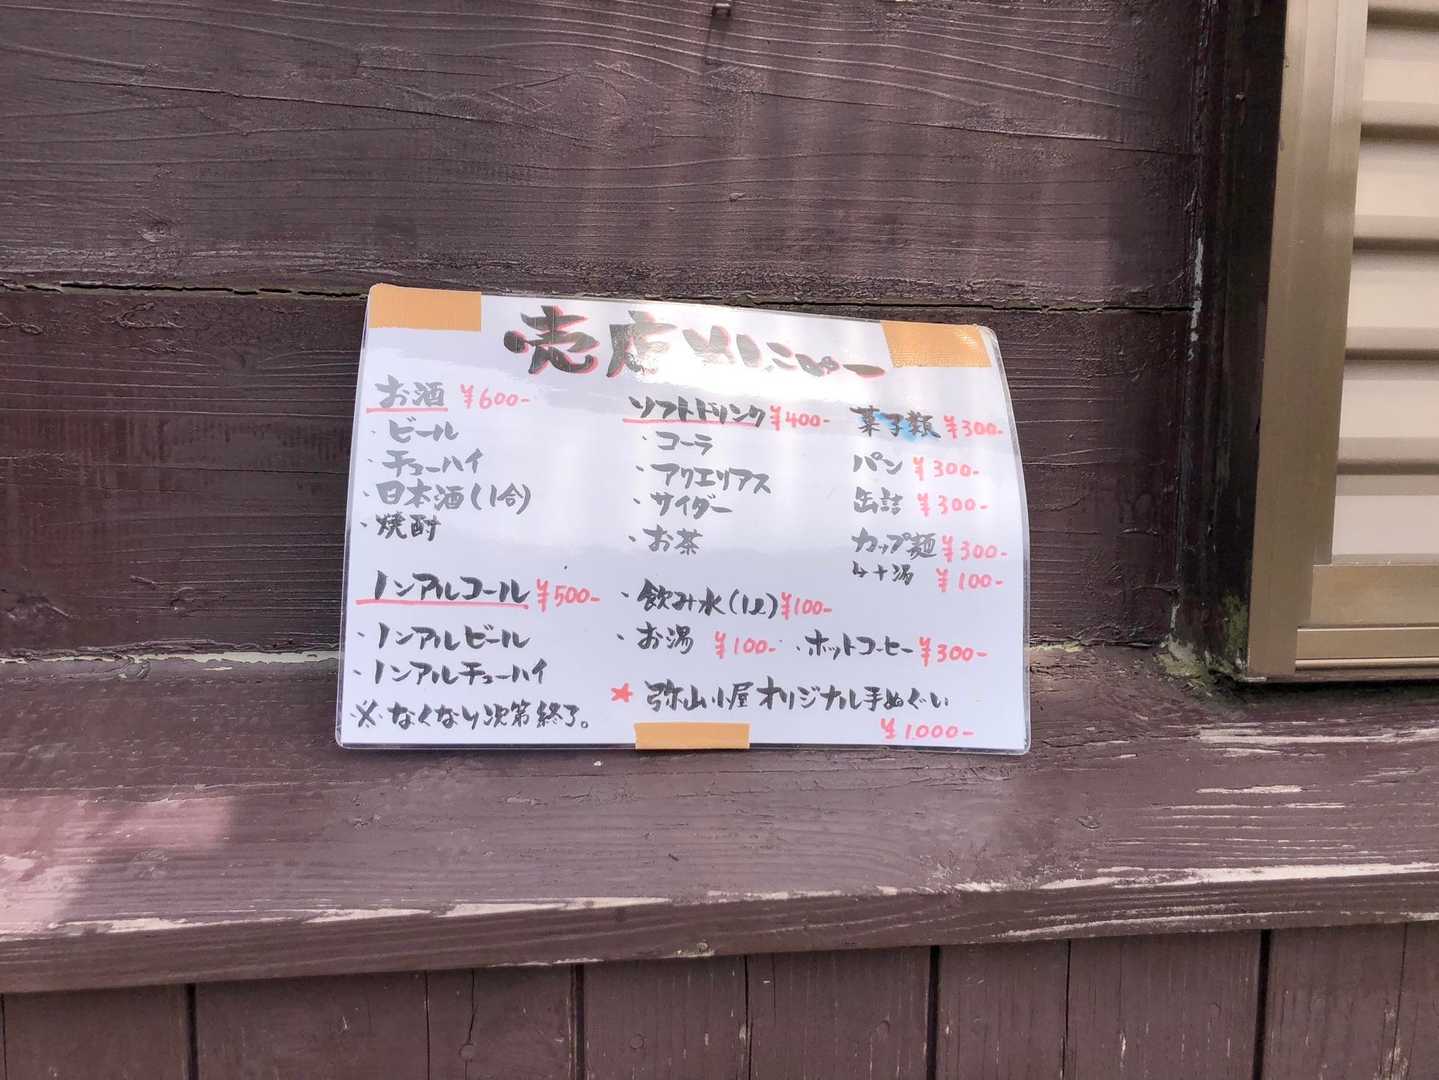 売店めにゅー
お酒 ¥600-
・ビール
・チューハイ
・日本酒(1合)
・焼酎
ノンアルコール ¥500-
・ノンアルビール
・ノンアルチューハイ
※なくなり次第終了。
ソフトドリンク ¥400-
・コーラ
・アクエリアス
・サイダー
・お茶
・飲み水(1ℓ) ¥100-
・お湯 ¥100- ・ホットコーヒー ¥300-
★弥山小屋オリジナル手ぬぐい
¥1.000-
菓子類 ¥300-
パン ¥300-
缶詰 ¥300-
カップ麺 ¥300-
↳+湯 ¥100-